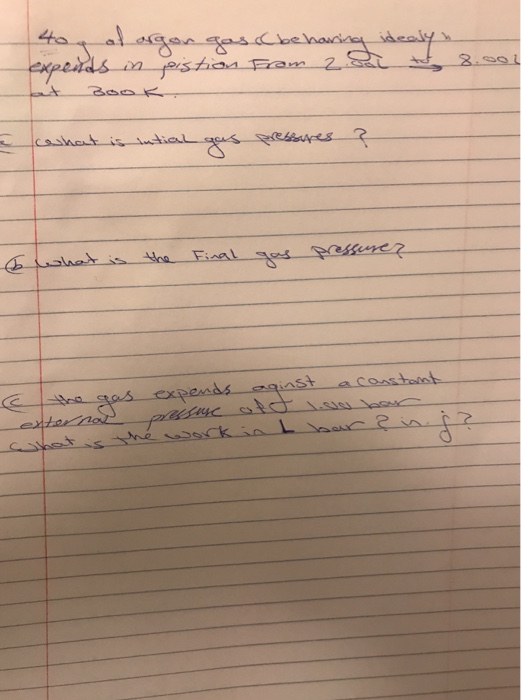 40 g of argon gas (behaving idealy)
expends in pistion From 2.00L to 8.00L
at 300K.
what is intial gas pressures ?
b what is the Final gas pressure?
c the gas expends aginst a constant
external pressure of 1.00 bar
what is the work in L bar ? in j?